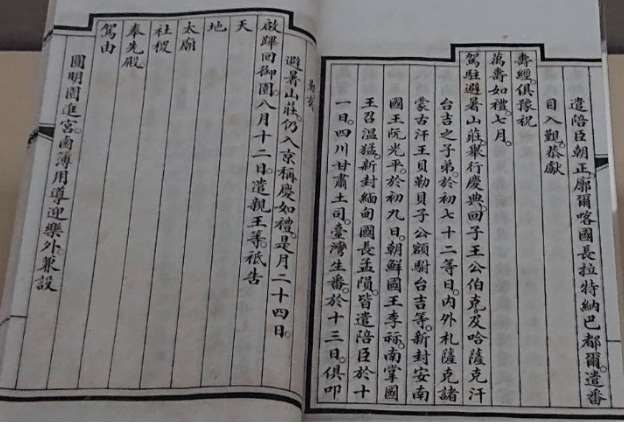 遣陪臣朝正。廓爾喀國長拉特納巴都爾。遣番
目入覲。恭獻
壽經。俱豫祝
萬壽如禮。七月。
駕駐避暑山莊。舉行慶典。回子王公伯克及哈薩克汗
台吉之子弟。於初七十二等日。內外札薩克諸
蒙古汗王貝勒貝子公額駙台吉等。新封安南
國王阮光平。於初九日。朝鮮國王李祘。南掌國
王召溫猛。新封緬甸國長孟隕。皆遣陪臣於十
一日。四川甘肅土司。臺灣生番。於十三日。俱叩
避暑山莊。仍入京稱慶如禮。是月二十四日。
啟蹕回御園。八月十二日。遣親王等。祗告
天
地
太廟
社稷
奉先殿
駕由
圓明園進宮。鹵簿用導迎樂外。兼設